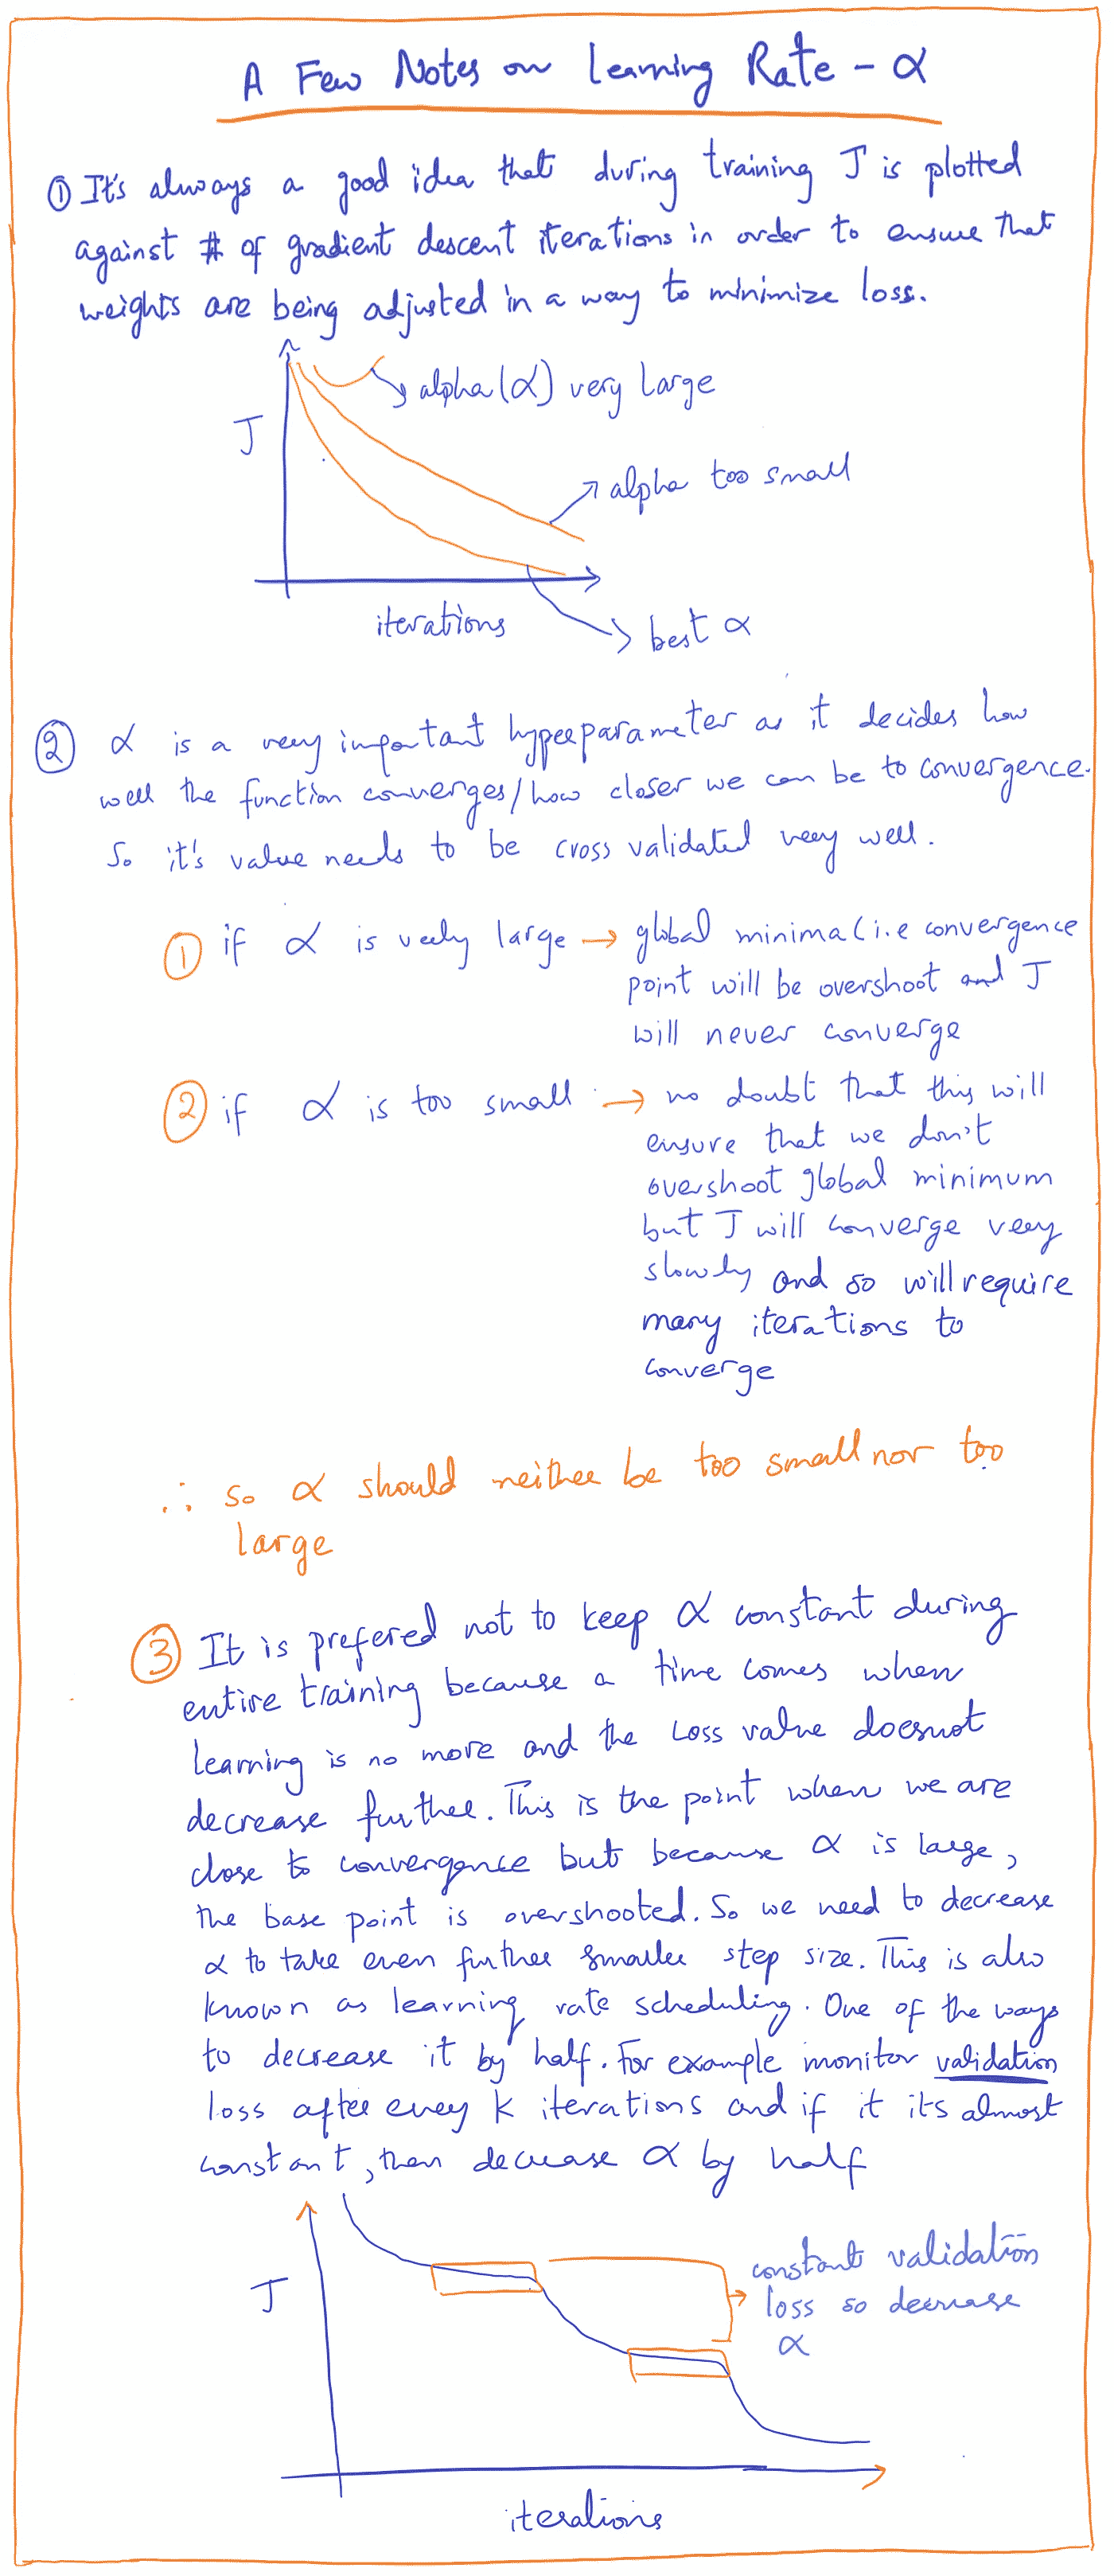 A Few Notes on Learning Rate - α
① It's always a good idea that during training J is plotted
against # of gradient descent iterations in order to ensure that
weights are being adjusted in a way to minimize loss.
alpha(α) very large
J
alpha too small
iterations
best α
② α is a very important hyperparameter as it decides how
well the function converges/how closer we can be to convergence.
So it's value needs to be cross validated very well.
① if α is very large → global minima (i.e convergence
point will be overshoot and J
will never converge
② if α is too small → no doubt that this will
ensure that we don't
overshoot global minimum
but J will converge very
slowly and so will require
many iterations to
converge
∴ so α should neither be too small nor too
large
③ It is prefered not to keep α constant during
entire training because a time comes when
learning is no more and the loss value doesnot
decrease further. This is the point when we are
close to convergence but because α is large,
the base point is overshooted. So we need to decrease
α to take even further smaller step size. This is also
known as learning rate scheduling. One of the ways
to decrease it by half. For example monitor validation
loss after every K iterations and if it its almost
constant, then decrease α by half
J
constant validation
loss so decrease
α
iterations